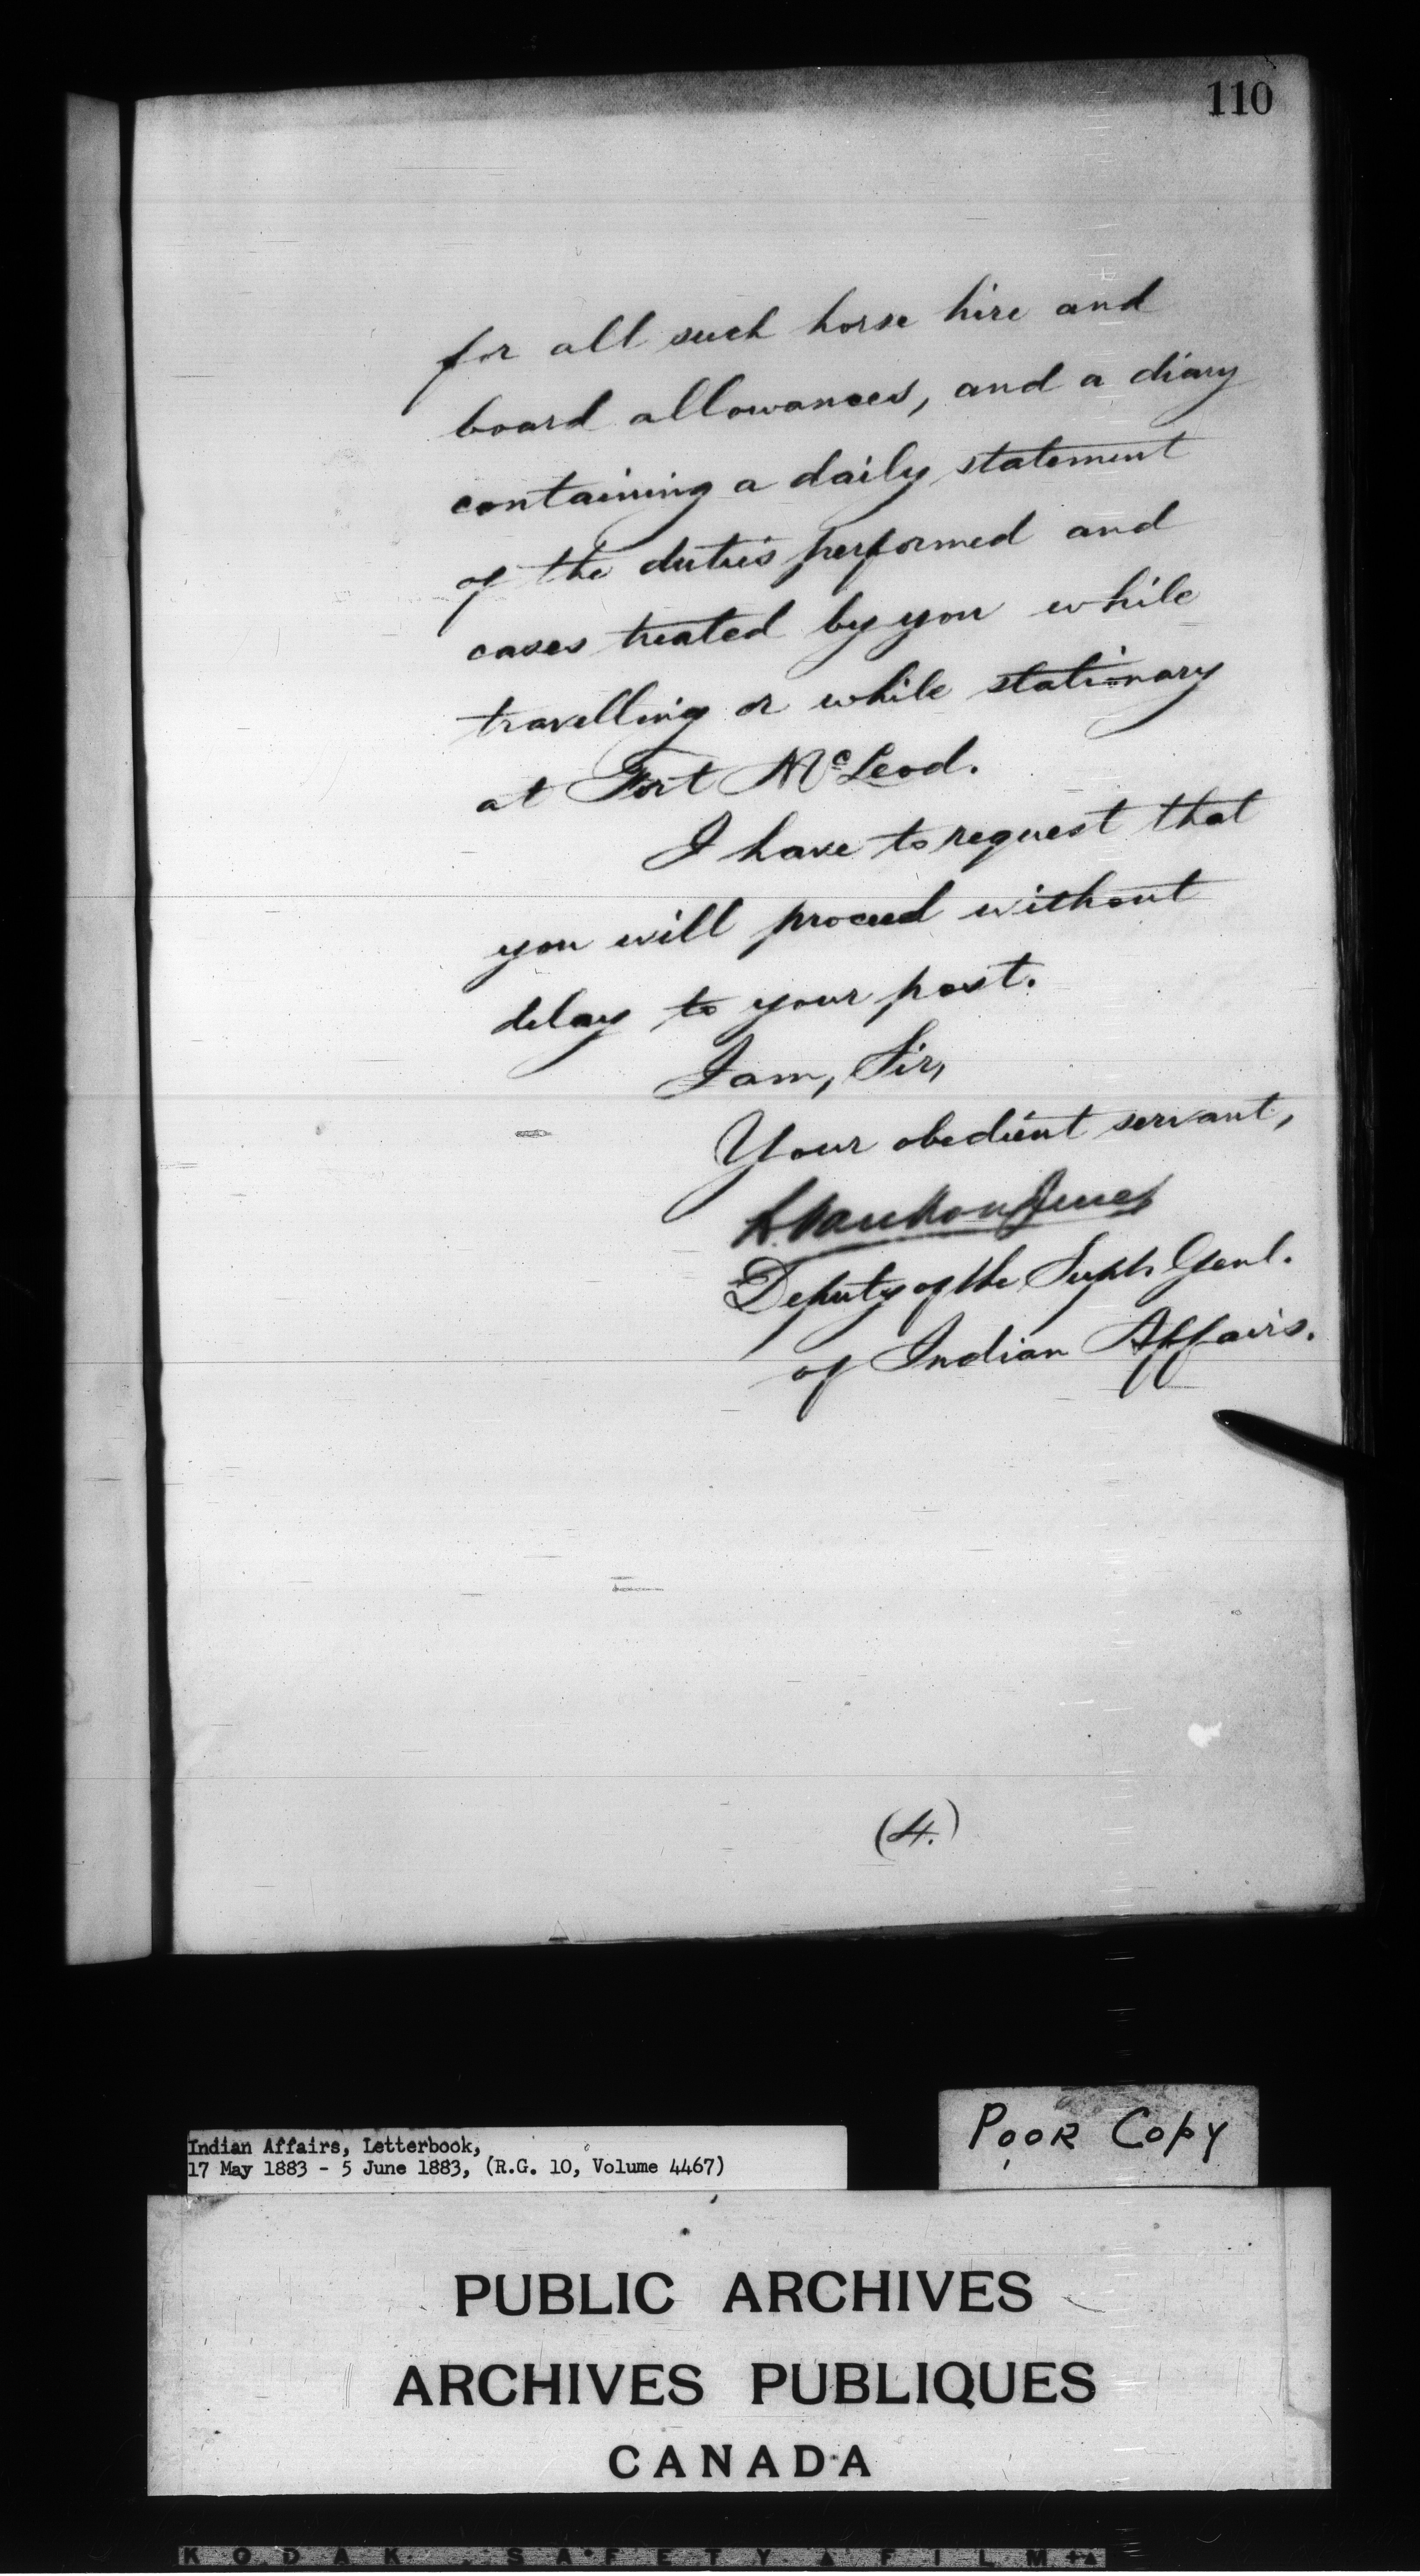 110
for all such horse hire and
board allowances, and a diary
containing a daily statement
of the duties performed and
cases treated by you while
travelling or while stationary
at Fort McLeod.
I have to request that
you will proceed without
delay to your post.
I am, Sir,
Your obedient servant,
L. Vankoughnet
Deputy of the Supt. Genl.
of Indian Affairs.
(4.)
Indian Affairs, Letterbook,
17 May 1883 - 5 June 1883, (R.G. 10, Volume 4467)
POOR COPY
PUBLIC ARCHIVES
ARCHIVES PUBLIQUES
CANADA
KODAK SAFETY FILM